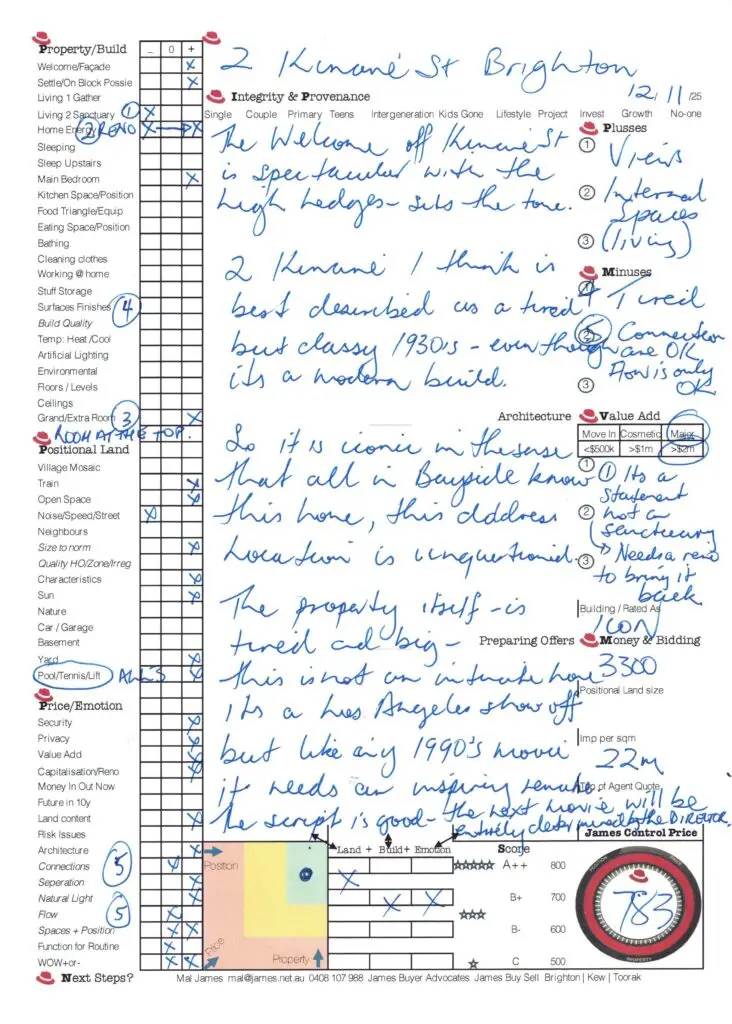 Property/Build - 0 +
2 Kinane St Brighton
12/11/25
Welcome/Façade x
Settle/On Block Possie x
Living 1 Gather
Living 2 Sanctuary ① x
Home Energy ② RENO x → x
Sleeping
Sleep Upstairs
Main Bedroom x
Kitchen Space/Position
Food Triangle/Equip
Eating Space/Position
Bathing
Cleaning clothes
Working @ home
Stuff Storage
Surfaces Finishes ④
Build Quality
Temp: Heat /Cool
Artificial Lighting
Environmental
Floors / Levels
Ceilings
Grand/Extra Room ③ x
ROOM AT THE TOP.
Positional Land
Village Mosaic
Train x
Open Space x
Noise/Speed/Street x
Neighbours
Size to norm x
Quality HO/Zone/Irreg
Characteristics x
Sun x
Nature
Car / Garage
Basement
Yard x
Pool/Tennis/Lift ALL 3 x
Price/Emotion
Security x
Privacy x
Value Add x
Capitalisation/Reno x
Money In Out Now
Future in 10y
Land content x
Risk Issues
Architecture x
Connections ⑤ x
Seperation x
Natural Light x
Flow ⑤ x
Spaces + Position x x
Function for Routine x
WOW+or- x x
Next Steps?
Integrity & Provenance
Single Couple Primary Teens Intergeneration Kids Gone Lifestyle Project Invest Growth No-one
The Welcome off Kinane St
is spectacular with the
high hedges - sets the tone.
2 Kinane I think is
best described as a tired
but classy 1930's - even though
its a modern build.
Architecture
So it is iconic in the sense
that all in Bayside know
this home, this address
Location is unquestioned.
The property itself - is
tired and big -
Preparing Offers
this is not an intimate home
Its a Los Angeles show off
but like any 1990's movie
it needs an inspiring remake
The script is good - the next movie will be
entirely determined by the DIRECTOR.
Plusses
① Views
② Internal
Spaces
③ (living)
Minuses
① Tired
② Connection
are OK
Flow is only
③ OK
Value Add
Move In Cosmetic Major
<$500k >$1m >$2m
① ① Its a
Statement
② not a
sanctuary
③ → Needs a reno
to bring it
back
Building / Rated As
ICON
Money & Bidding
3300
Positional Land size
Imp per sqm
22m
Top of Agent Quote
James Control Price
POSITION PRICE PROPERTY
783
Position
Price
Property
Land + Build + Emotion Score
x ☆☆☆☆☆ A++ 800
x x B+ 700
☆☆☆ B- 600
☆ C 500
Mal James mal@james.net.au 0408 107 988 James Buyer Advocates James Buy Sell Brighton | Kew | Toorak